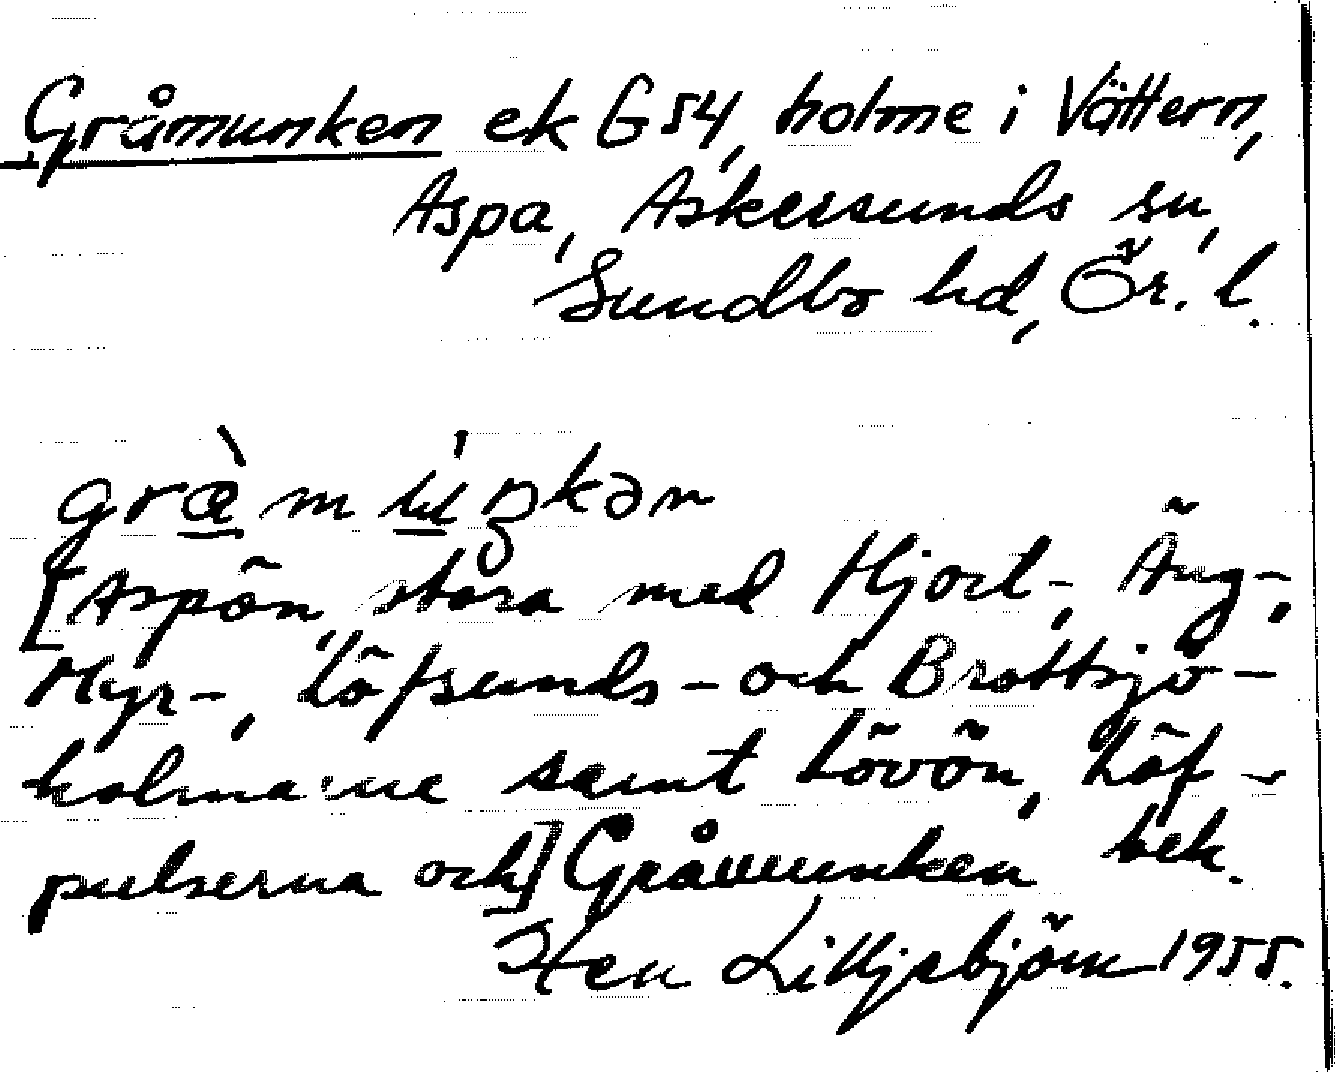 Gråmunken ek G54, holme i Vättern,
Aspa, Askersunds sn,
Sundbo hd, Ör. l.
gràmúŋkən
[Aspön, stora med Hjort-, Äng-,
Myr-, Löfsunds- och Brottsjö-
holmarne samt Lövön, Löf-
pulserna och] Gråmunken bek.
Sten Lilljebjörn 1955.